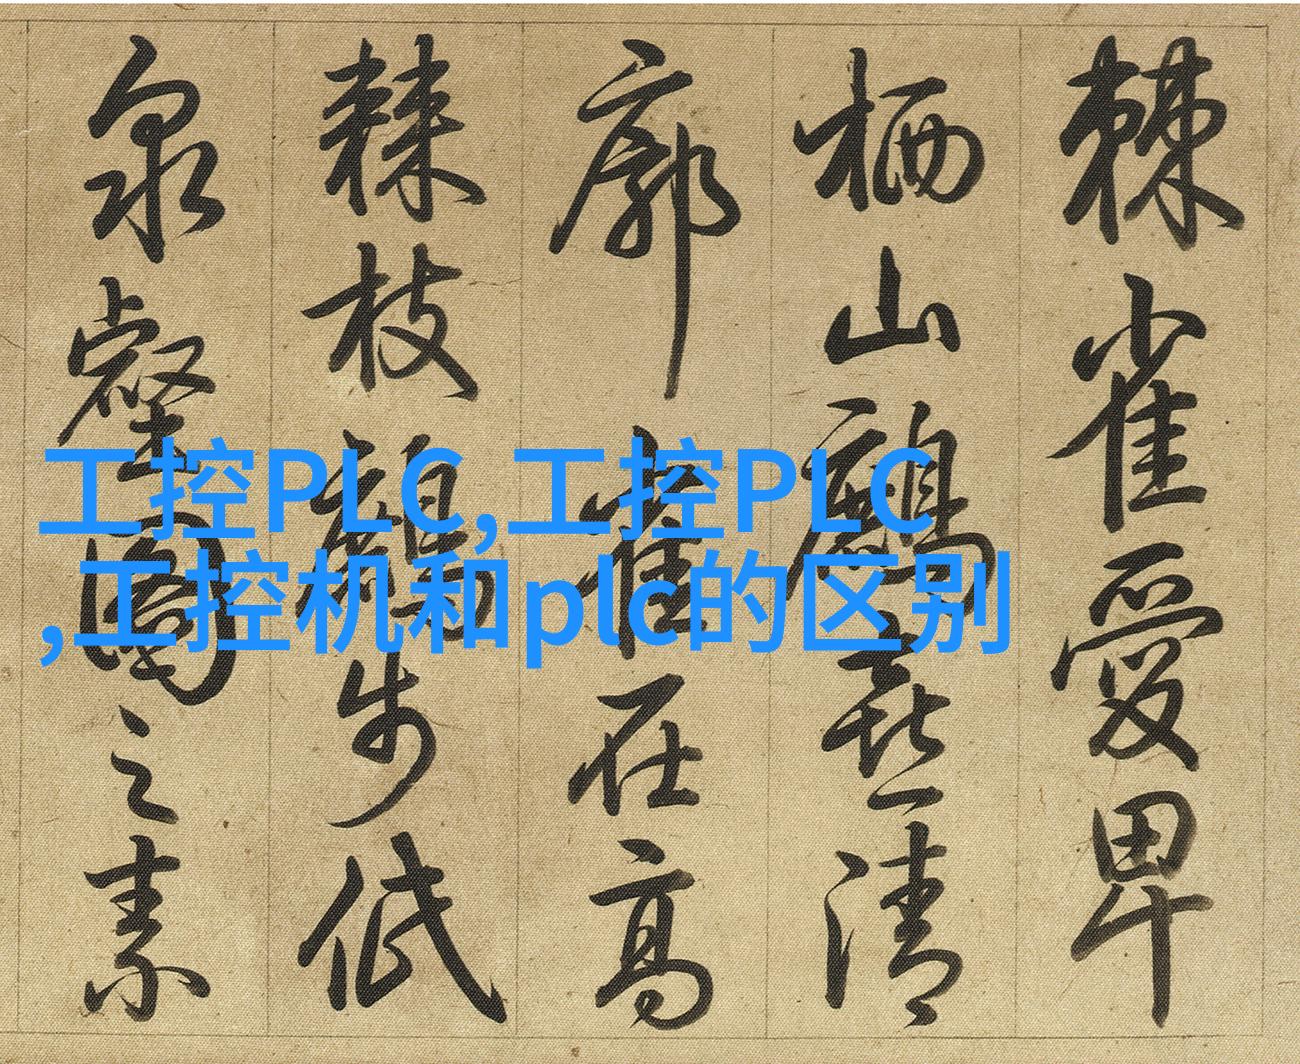 棘雀愛卑
栖山鷹喜清
廓雀在高
棘枝步低
泉壑之素
工控PLC,工控PLC
,工控机和plc的区别